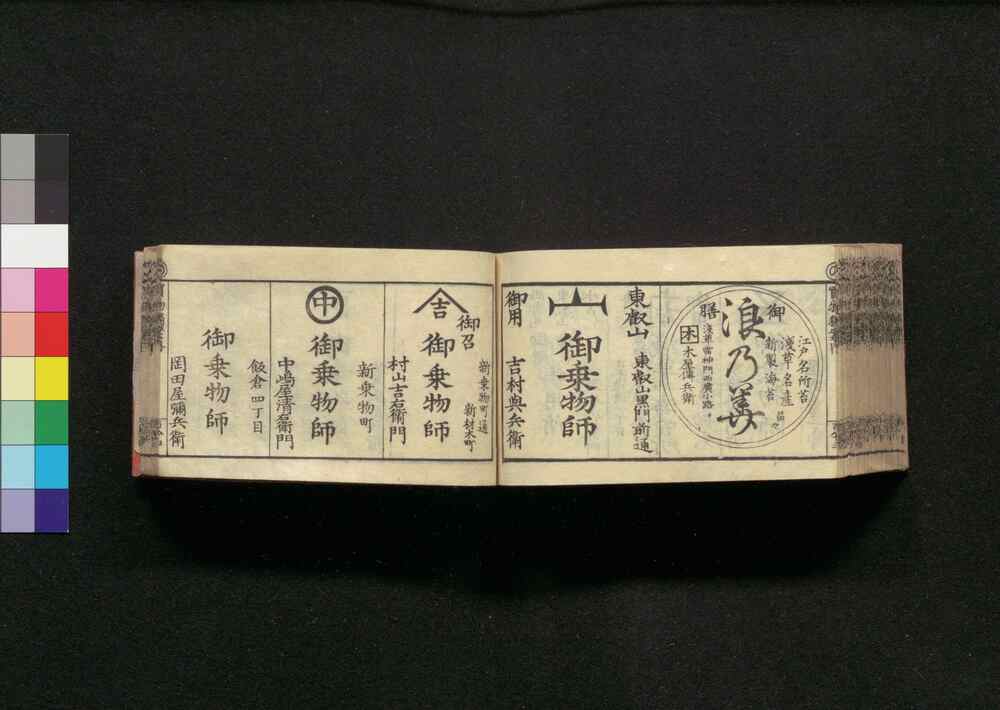 江戸名所苔
浅草名産
新製海苔
品々
御膳
浪乃華
浅草雷神門西廣小路
木
木屋傳兵衛
東叡山
東叡山黒門前通
山
御乗物師
御用
吉村與兵衛
新乗物町通
新材木町
御召
吉
御乗物師
村山吉右衛門
新乗物町
中
御乗物師
中嶋屋清右衛門
飯倉四丁目
御乗物師
岡田屋彌兵衛